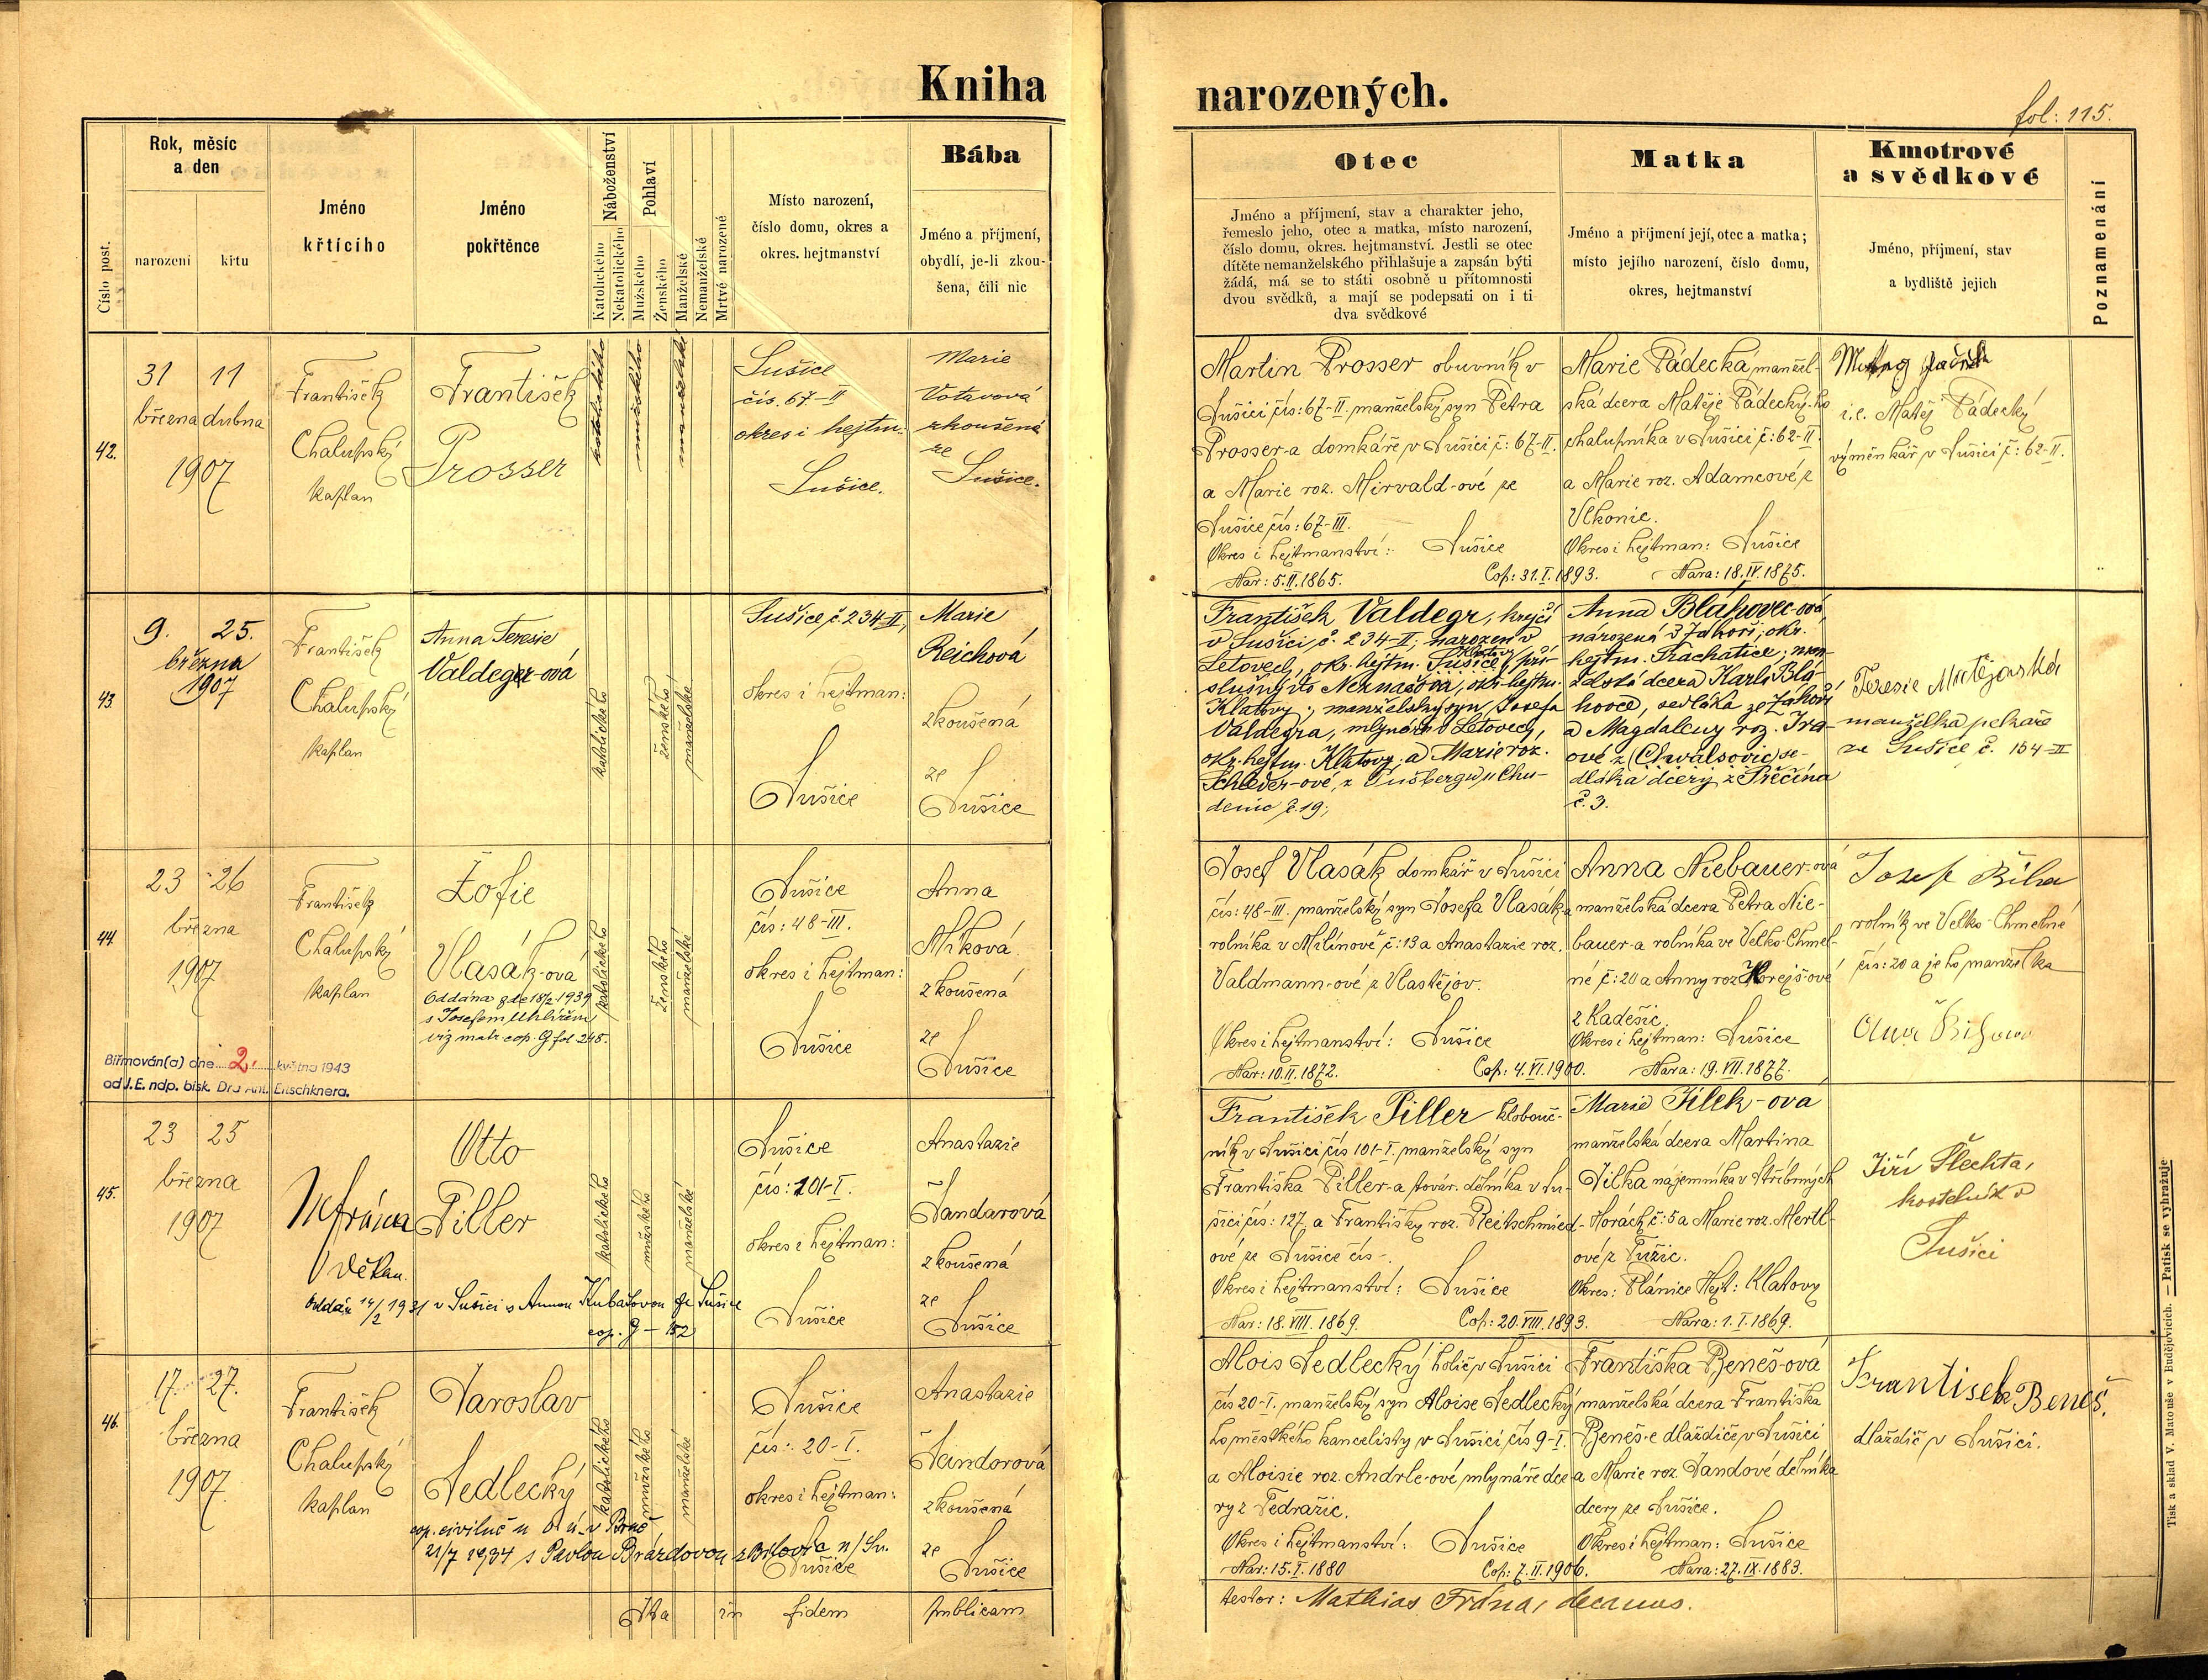 Kniha
narozených.
fol: 115.
Číslo post.
Rok, měsíc
a den
narození
křtu
Jméno
křtícího
Jméno
pokřtěnce
Náboženství
Katolického
Nekatolického
Pohlaví
Mužského
Ženského
Manželské
Nemanželské
Mrtvé narozené
Místo narození,
číslo domu, okres a
okres. hejtmanství
Bába
Jméno a příjmení,
obydlí, je-li zkou-
šena, čili nic
Otec
Jméno a příjmení, stav a charakter jeho,
řemeslo jeho, otec a matka, místo narození,
číslo domu, okres. hejtmanství. Jestli se otec
dítěte nemanželského přihlašuje a zapsán býti
žádá, má se to státi osobně u přítomnosti
dvou svědků, a mají se podepsati on i ti
dva svědkové
Matka
Jméno a příjmení její, otec a matka;
místo jejího narození, číslo domu,
okres, hejtmanství
Kmotrové
a svědkové
Jméno, příjmení, stav
a bydliště jejich
Poznamenání
42.
31 11
března dubna
1907
František
Chalupský
kaplan
František
Prosser
katolického
mužského
manželské
Sušice
čís. 67-II
okres i hejtm:
Sušice.
Marie
Votavová
zkoušená
ze
Sušice.
Martin Prosser obuvník v
Sušici čís: 67-II. manželský syn Petra
Prosser-a domkáře v Sušici č: 67-II.
a Marie roz. Mirvald-ové ze
Sušice čís: 67-III.
Okres i hejtmanství: Sušice
Nar: 5.II.1865. Cop: 31.I.1893.
Marie Pádecká manžel-
ská dcera Matěje Pádecký-ho
chalupníka v Sušici č: 62-II.
a Marie roz. Adamcové z
Vlkonic.
Okres i hejtman: Sušice
Nara: 18.IV.1875.
i. e. Matěj Pádecký
výměnkář v Sušici č: 62-II.
43.
9. 25.
března
1907
František
Chalupský
kaplan
Anna Teresie
Valdegr-ová
katolického
ženského
manželské
Sušice, č 234-II,
okres i hejtman:
Sušice
Marie
Reichová
zkoušená
ze
Sušice
František Valdegr, krejčí
v Sušici, č. 234-II; narozen v
Letovech, okr. hejtm. Sušice Klatovy, pří-
slušný do Neznašova, okr. hejtm.
Klatovy; manželský syn Josefa
Valdegra, mlynáře v Letovech,
okr. hejtm. Klatovy, a Marie roz.
denic č. 19;
Anna Bláhovec-ová,
narozená z Záhoří, okr.
hejtm. Prachatice; man-
želská dcera Karla Blá-
hovce, sedláka ze Záhoří
a Magdaleny roz.
ové z (Chvalšovic) se-
dláka dcery z Přečína
č. 3.
Teresie Matějovská
manželka pekaře
ze Sušice č. 154-II
44.
23 26
března
1907
František
Chalupský
kaplan
Žofie
Vlasák-ová
Oddána zde 18/2 1939
s Josefem Uhlířem,
viz matr. cop. G fol 248.
Biřmován(a) dne 2. května 1943
od J. E. ndp. bisk. Dra Ant. Eltschknera.
katolického
ženského
manželské
Sušice
čís: 48-III.
okres i hejtman:
Sušice
Anna
Míková
zkoušená
ze
Sušice
Josef Vlasák domkář v Sušici
čís: 48-III. manželský syn Josefa Vlasák-a
rolníka v Milínově č: 13 a Anastazie roz.
Valdmann-ové z Vlastějov.
Okres i hejtmanství: Sušice
Nar: 10.II.1872. Cop: 4.VI.1900.
Anna Niebauer-ová
manželská dcera Petra Nie-
bauer-a rolníka ve Velko-Chmel-
né č: 20 a Anny roz Horejš-ové
z Kadešic.
Okres i hejtman: Sušice
Nara: 19.VII.1877.
Josef Bíba
rolník ve Velko-Chmelné
čís: 20 a jeho manželka
45.
23 25
března
1907
M. Frána
děkan.
Otto
Piller
Oddán 14/2 1931 v Sušici s Annou Kubátovou ze Sušice
cop. G - 152
katolického
mužského
manželské
Sušice
čís: 101-I.
okres i hejtman:
Sušice
Anastazie
Šandarová
zkoušená
ze
Sušice
František Piller klobouč-
ník v Sušici čís 101-I. manželský syn
Františka Piller-a továr. dělníka v Su-
šici čís: 127 a Františky roz. Reitschmied-
ové ze Sušice čís -.
Okres i hejtmanství: Sušice
Nar: 18.VIII.1869. Cop: 20.VIII.1893.
Marie Jílek-ová
manželská dcera Martina
Jílka nájemníka v Stříbrných
Horách č: 5 a Marie roz. Mertl-
ové z Tužic.
Okres: Plánice Hejt: Klatovy
Nara: 1.I.1869.
Jiří Šlechta,
kostelník v
Sušici
46.
17. 27.
března
1907.
František
Chalupský
kaplan
Jaroslav
Sedlecký
cop. civilně u O. ú. v Brně
21/7 1934 s Pavlou Brázdovou z Bílovic n/Sv.
katolického
mužského
manželské
Sušice
čís: 20-I.
okres i hejtman:
Sušice
Anastazie
Šandorová
zkoušená
ze
Sušice
Alois Sedlecký holič v Sušici
čís 20-I. manželský syn Aloise Sedlecký
ho městkého kancelisty v Sušici čís 9-I.
a Aloisie roz. Andrle-ové mlynáře dce
ry z Pedražic.
Okres i hejtmanství: Sušice
Nar: 15.I.1880 Cop: 7.II.1906.
Františka Beneš-ová
manželská dcera Františka
Beneš-e dlaždiče v Sušici
a Marie roz. Jandové dělníka
dcery ze Sušice.
Okres i hejtman: Sušice
Nara: 27.IX.1883.
František Beneš.
dlaždič v Sušici.
Ita in fidem publicam
testor: Mathias Frána, decanus.
Tisk a sklad V. Matouše v Budějovicích. — Patisk se vyhražuje